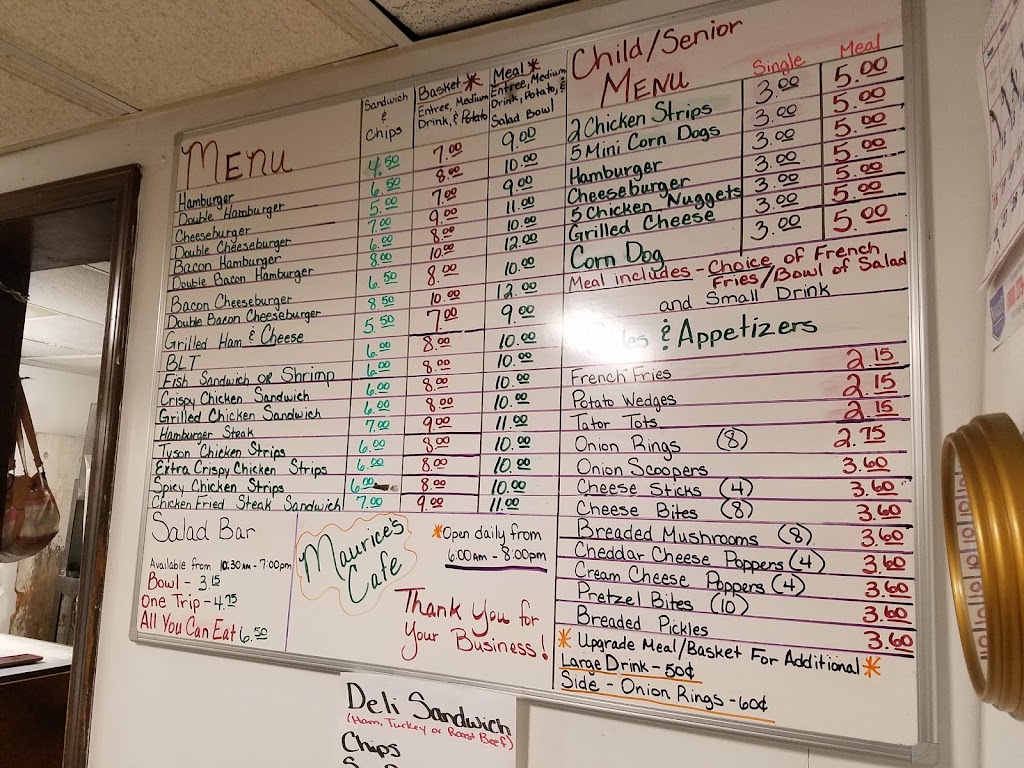 MENU
Sandwich & Chips
Basket* Entree, Medium Drink, & Potato
Meal* Entree, Medium Drink, Potato, & Salad Bowl
Hamburger 4.50 7.00 9.00
Double Hamburger 6.50 8.00 10.00
Cheeseburger 5.00 7.00 9.00
Double Cheeseburger 7.00 9.00 11.00
Bacon Hamburger 6.00 8.00 10.00
Double Bacon Hamburger 8.00 10.00 12.00
Bacon Cheeseburger 6.50 8.00 10.00
Double Bacon Cheeseburger 8.50 10.00 12.00
Grilled Ham & Cheese 5.50 7.00 9.00
BLT 6.00 8.00 10.00
Fish Sandwich or Shrimp 6.00 8.00 10.00
Crispy Chicken Sandwich 6.00 8.00 10.00
Grilled Chicken Sandwich 6.00 8.00 10.00
Hamburger Steak 7.00 9.00 11.00
Tyson Chicken Strips 6.00 8.00 10.00
Extra Crispy Chicken Strips 6.00 8.00 10.00
Spicy Chicken Strips 6.00 8.00 10.00
Chicken Fried Steak Sandwich 7.00 9.00 11.00
Salad Bar
Available from 10:30 AM - 7:00pm
Bowl - 3.15
One Trip - 4.75
All You Can Eat 6.50
Maurice's
Cafe
*Open daily from
6:00 AM - 8:00pm
Thank You for
Your Business!
Child/Senior
MENU
Single Meal
2 Chicken Strips 3.00 5.00
5 Mini Corn Dogs 3.00 5.00
Hamburger 3.00 5.00
Cheeseburger 3.00 5.00
5 Chicken Nuggets 3.00 5.00
Grilled Cheese 3.00 5.00
Corn Dog 3.00 5.00
Meal includes - Choice of French
Fries/Bowl of Salad
and Small Drink
& Appetizers
French Fries 2.15
Potato Wedges 2.15
Tator Tots 2.15
Onion Rings (8) 2.75
Onion Scoopers 3.60
Cheese Sticks (4) 3.60
Cheese Bites (8) 3.60
Breaded Mushrooms (8) 3.60
Cheddar Cheese Poppers (4) 3.60
Cream Cheese Poppers (4) 3.60
Pretzel Bites (10) 3.60
Breaded Pickles 3.60
* Upgrade Meal/Basket For Additional *
Large Drink - 50¢
Side - Onion Rings - 60¢
Deli Sandwich
(Ham, Turkey or Roast Beef)
Chips